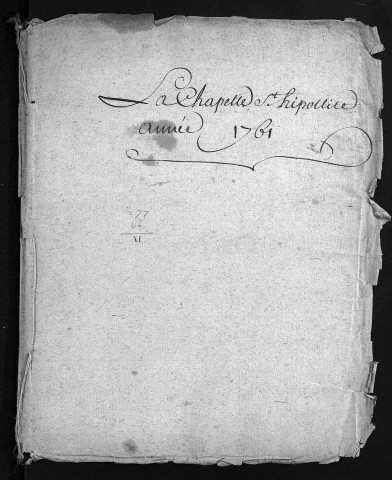 La Chapelle St hipollice
année 1761